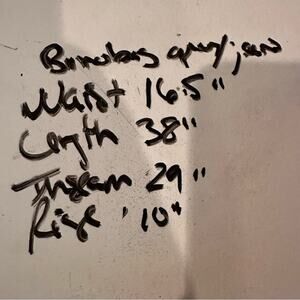 gray jean
Waist 16.5"
Length 38"
Inseam 29"
Rise 10"